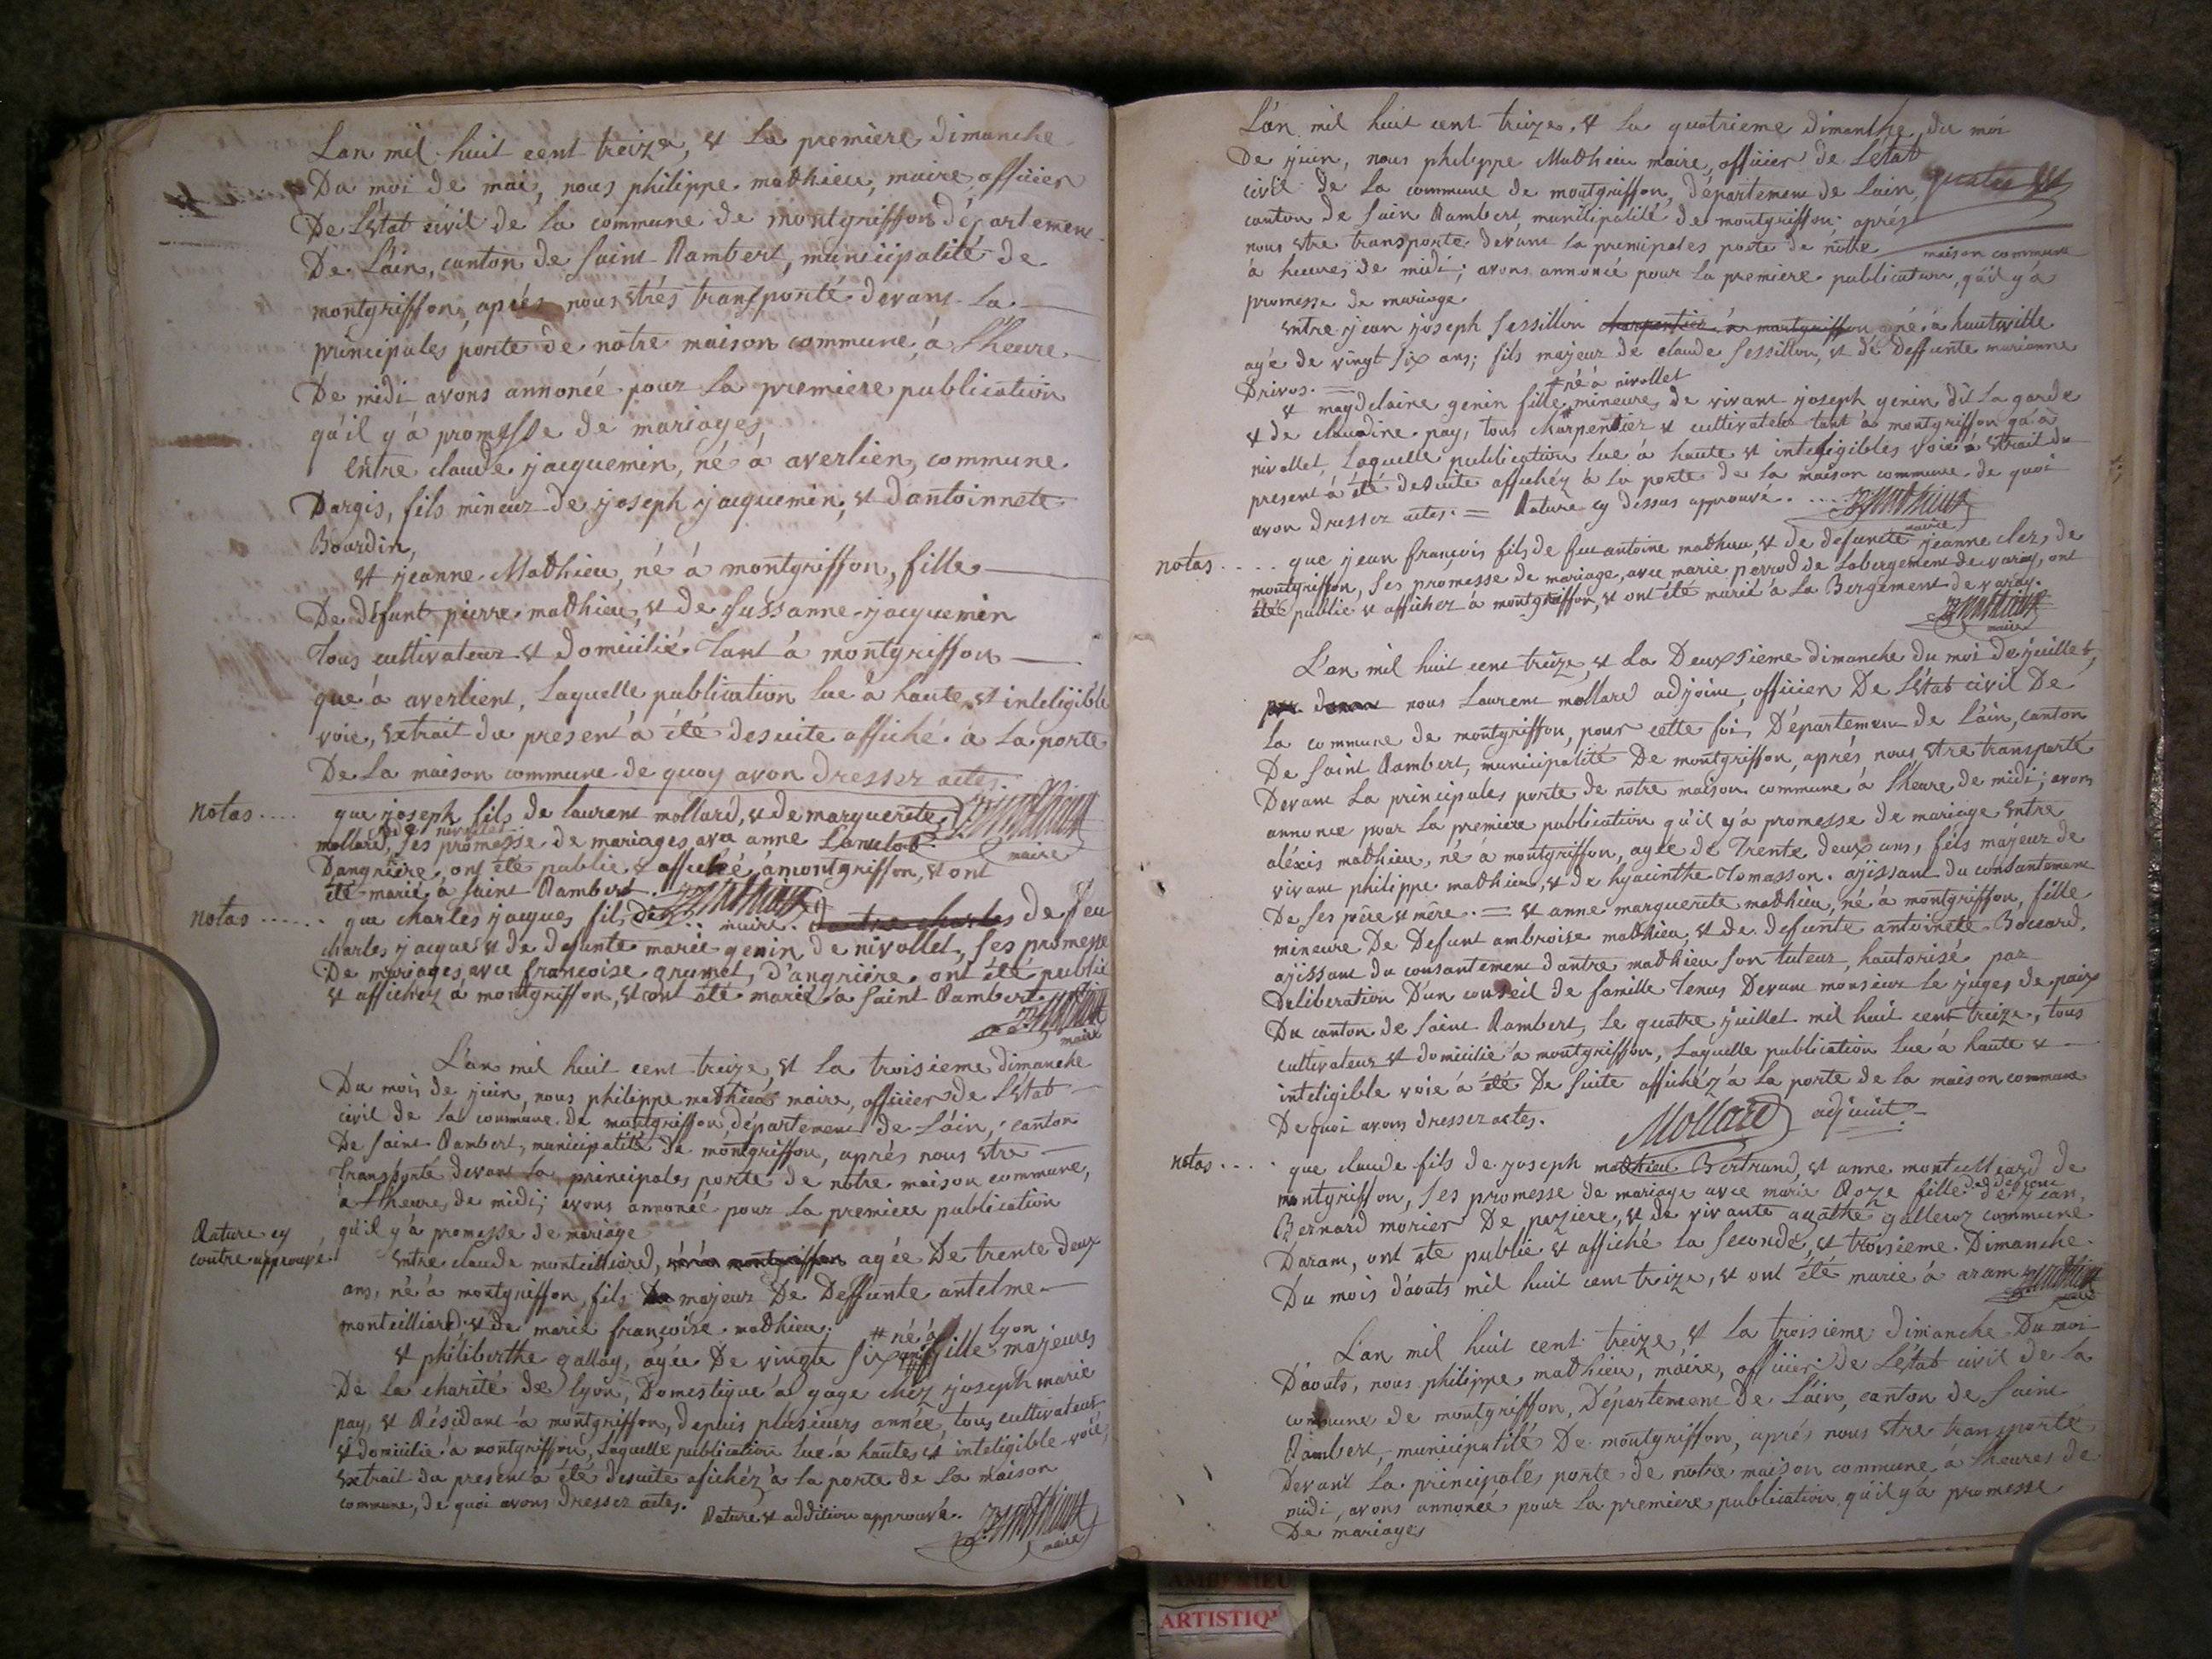 Lan mil huit cent treize, et La premiere dimanche
Du moi de mai, nous philippe mathieu, maire officier
De Létat civil de La commune de montgriffon département
De Lain, canton de saint Rambert, municipalité de
montgriffon, aprés nous êtrés transporté devant La
principales porte de notre maison commune, á Lheure
De midi avons annoncée pour La premiere publication
qu'il y'á promesse de mariages
Entre claude jacquemin, né á averlien, commune
Dargis, fils mineur de joseph jacquemin, et dantoinnete
Bourdin,
et jeanne Mathieu, né á montgriffon, fille
De défunt pierre mathieu, et de sussanne jacquemin
Tous cultivateur et domicilié Tant á montgriffon
que á averlient, Laquelle publication lue á haute et inteligible
voie, Extrait du present á été desuite affiché á La porte
De La maison commune de quoy avon dresser actes.
notas.... que joseph fils de laurent mollard, et de marguerite
mollard, de nivollet ses promesse de mariages avec anne Lancelot
Dangriere, ont été publie et affiché á montgriffon, et ont
été marié á saint Rambert. maire
notas...... que charles jacques fils De feu
charles jacque et de defunte marie genin de nivollet, ses promesse
De mariages avec francoise grumet, d'angriere ont été publie
et affichez á montgriffon, et ont été marié á saint Rambert
maire
L'an mil huit cent treize et La troisieme dimanche
Du mois de juin, nous philippe mathieu maire, officier de Létat
civil de La commune de montgriffon département de Láin, canton
De saint Rambert, municipalité de montgriffon, aprés nous être
Transporté devant La principales porte de notre maison commune,
á Lheures de midi; avons annoncée pour La premiere publication
Rature cy contre approuvé. qu'il y'á promesse de mariage
Entre claude montcilliard, né á montgriffon agée De trente deux
ans, né á montgriffon, fils majeur De Deffunte antelme
montcilliard et de marie françoise mathieu.
et philiberthe gallay, agée De vingte six ans né á Lyon fille majeures
De La charité de Lyon, Domestique á gage chéz joseph marie
pay, et Résidant á montgriffon, depuis plusieurs année, tous cultivateur
et domicilie á montgriffon, Laquelle publication lue á hautes et inteligible voie,
Extrait du present á été desuite afichéz á La porte de La maison
commune, de quoi avons dresser actes. Rature et addition approuvé.
maire
L'an mil huit cent treize, et La quatrieme dimanche du moi
De juin, nous philippe Mathieu maire, officier de Létat
civil de La commune de montgriffon, département de Lain,
canton de sain Rambert, municipalité de montgriffon; aprés
nous etre transporte devant La principales porte de notre maison commune
á heures de midi; avons annoncé pour La premiere publication, qu'il y'á
promesse de mariage
Entre jean joseph sessillon né á hauteville
agé de vingt six ans; fils majeur de claude sessillon, et de deffunte marianne
Drivos.
et magdelaine genin fille né á nivollet mineures de vivant joseph genin dit La garde
et de claudine pay, tous charpentier et cultivateur tant á montgriffon qu'á
nivollet, Laquelle publication lue á haute et inteligibles voie Extrait du
present á été desuite affichéz á La porte de La maison commune de quoi
avon dresser actes. = Rature cy dessus approuvé.....
maire
notas.... que jean françois fils de feu antoine mathieu, et de defuncte jeanne clez, de
montgriffon, ses promesse de mariage, avec marie perrod de Labergement de varay, ont
été publie et affichez á montgriffon, et ont été marié á La Bergement de varay.
maire
L'an mil huit cent treize, et La Deuxsieme dimanche du moi de juillet,
nous Laurent mollard adjoint, officier De Létat civil De
La commune de montgriffon, pour cette foi, Département de Láin, canton
De saint Rambert, municipalité De montgriffon, aprés nous etre transporté
Devant La principales porte de notre maison commune á Lheure de midi; avons
annonce pour La premiere publication qu'il y'á promesse de mariage Entre
aléxis mathieu, né á montgriffon, agée de Trente deux ans, fils majeur de
vivant philippe mathieu et de hyacinthe Tomasson. agissant du consantement
De ses pére et mére. = et anne marguerite mathieu, né á montgriffon, fille
mineure De Defunt ambroise mathieu, et de defunte antoinete Bossard,
agissant du consantement dantre mathieu son tuteur, hautorisé par
Deliberation D'un conseil de famille Tenus Devant monsieur Le juges de paix
Du canton de saint Rambert, Le quatre juillet mil huit cent treize, tous
cultivateur et domicilie á montgriffon, Laquelle publication lue á haute et
inteligible voie á été De suite affichéz á La porte de La maison commune
De quoi avons dresser actes. Mollard adjoint
notas.... que claude fils de joseph mathieu Bertrand, et anne montcilliard de
montgriffon, ses promesse de mariage avec marie Roze fille de jean,
Bernard morier De peziere, et de vivante agathe galleroz commune
Daram, ont été publie et affiché La seconde, et troisieme Dimanche
Du mois d'aouts mil huit cent treize, et ont été marie á aram
L'an mil huit cent treize et La troisieme dimanche Du moi
D'aouts, nous philippe mathieu, maire, officier de Létat civil de La
commune de montgriffon, Département De Láin, canton de saint
Rambert, municipalité De montgriffon, aprés nous etre transporté
Devant La principales porte de notre maison commune á Lheures de
midi, avons annoncée pour La premiere publication qu'il y'á promesse
De mariages
ARTISTIQU